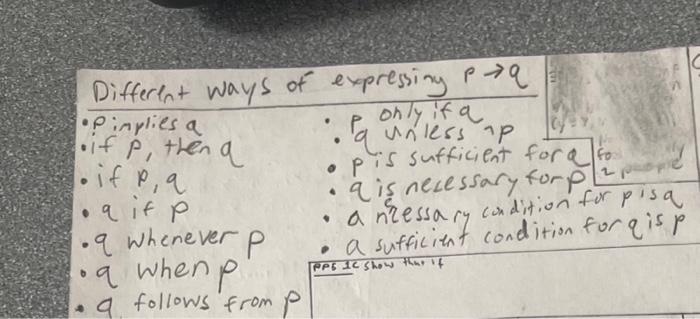 Different ways of expressing p → q
• p implies q
• if p, then q
• if p, q
• q if p
• q whenever p
• q when p
• q follows from p
• p only if q
• q unless ¬p
• p is sufficient for q
• q is necessary for p
• a nessary condition for p is q
• a sufficient condition for q is p
for
2 people
PPS 1c show that if